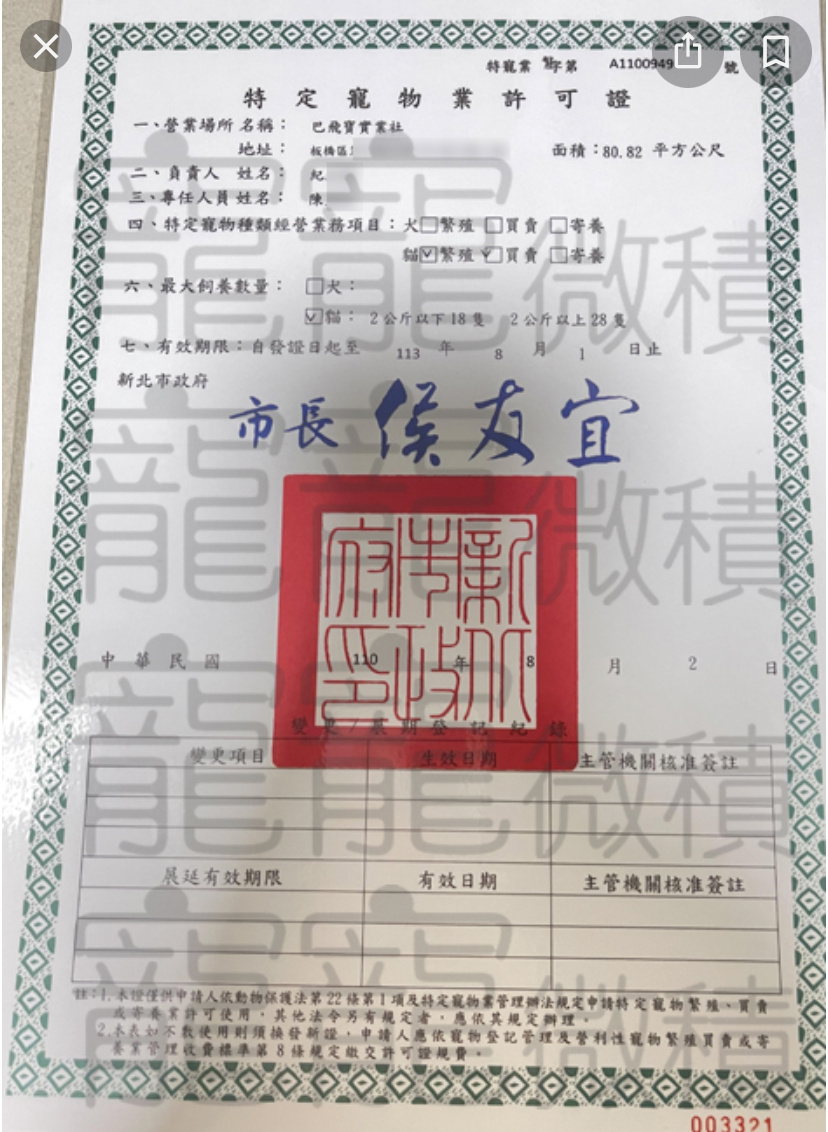 特寵業 字第 A1100949 號
特定寵物業許可證
一、營業場所名稱： 巴飛寶實業社
地址： 板橋區 面積：80.82 平方公尺
二、負責人 姓名： 紀
三、專任人員 姓名： 陳
四、特定寵物種類經營業務項目：犬□繁殖 □買賣 □寄養
貓☑繁殖 ☑買賣 □寄養
六、最大飼養數量： □犬：
☑貓： 2公斤以下18隻 2公斤以上28隻
七、有效期限：自發證日起至 113 年 8 月 1 日止
新北市政府
市長 侯友宜
新北市政府印
中華民國 110 年 8 月 2 日
變更/展期登記紀錄
變更項目 生效日期 主管機關核准簽註
展延有效期限 有效日期 主管機關核准簽註
註：1.本證僅供申請人依動物保護法第22條第1項及特定寵物業管理辦法規定申請特定寵物繁殖、買賣
或寄養業許可使用，其他法令另有規定者，應依其規定辦理。
2.本表如不敷使用則須換發新證，申請人應依寵物登記管理及營利性寵物繁殖買賣或寄
養業管理收費標準第8條規定繳交許可證規費。
003321
寵龍微積